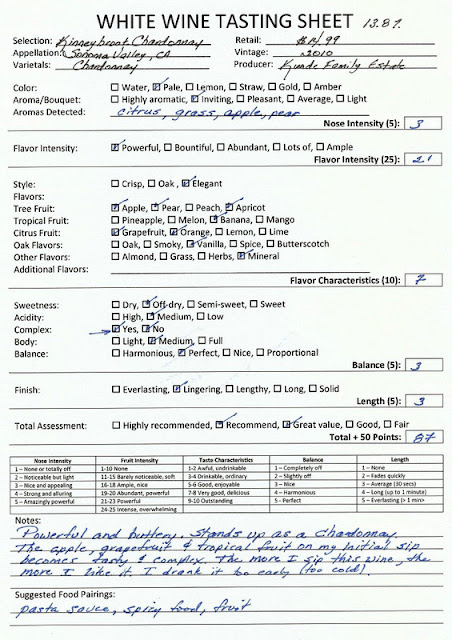 WHITE WINE TASTING SHEET 13.8%
Selection: Kinneybrook Chardonnay Retail: $14.99
Appellation: Sonoma Valley, CA Vintage: 2010
Varietals: Chardonnay Producer: Kunde Family Estate
Color: ☐ Water, ☑ Pale, ☐ Lemon, ☐ Straw, ☐ Gold, ☐ Amber
Aroma/Bouquet: ☐ Highly aromatic, ☑ Inviting, ☐ Pleasant, ☐ Average, ☐ Light
Aromas Detected: citrus, grass, apple, pear
Nose Intensity (5): 3
Flavor Intensity: ☑ Powerful, ☐ Bountiful, ☐ Abundant, ☐ Lots of, ☐ Ample
Flavor Intensity (25): 21
Style: ☐ Crisp, ☐ Oak, ☑ Elegant
Flavors:
Tree Fruit: ☑ Apple, ☑ Pear, ☐ Peach, ☑ Apricot
Tropical Fruit: ☐ Pineapple, ☐ Melon, ☑ Banana, ☐ Mango
Citrus Fruit: ☑ Grapefruit, ☑ Orange, ☐ Lemon, ☐ Lime
Oak Flavors: ☐ Oak, ☐ Smoky, ☑ Vanilla, ☐ Spice, ☐ Butterscotch
Other Flavors: ☐ Almond, ☐ Grass, ☐ Herbs, ☑ Mineral
Additional Flavors:
Flavor Characteristics (10): 7
Sweetness: ☐ Dry, ☑ Off-dry, ☐ Semi-sweet, ☐ Sweet
Acidity: ☐ High, ☑ Medium, ☐ Low
Complex: ☑ Yes, ☑ No
Body: ☐ Light, ☑ Medium, ☐ Full
Balance: ☐ Harmonious, ☑ Perfect, ☐ Nice, ☐ Proportional
Balance (5): 3
Finish: ☐ Everlasting, ☑ Lingering, ☐ Lengthy, ☐ Long, ☐ Solid
Length (5): 3
Total Assessment: ☐ Highly recommended, ☑ Recommend, ☑ Great value, ☐ Good, ☐ Fair
Total + 50 Points: 87
Nose Intensity Fruit Intensity Taste Characteristics Balance Length
1 – None or totally off 1-10 None 1-2 Awful, undrinkable 1 – Completely off 1 – None
2 – Noticeable but light 11-15 Barely noticeable, soft 3-4 Drinkable, ordinary 2 – Slightly off 2 – Fades quickly
3 – Nice and appealing 16-18 Ample, nice 5-6 Good, enjoyable 3 – Nice 3 – Average (30 secs)
4 – Strong and alluring 19-20 Abundant, powerful 7-8 Very good, delicious 4 – Harmonious 4 – Long (up to 1 minute)
5 – Amazingly powerful 21-23 Powerful 9-10 Outstanding 5 - Perfect 5 – Everlasting (> 1 min)
24-25 Intense, overwhelming
Notes:
Powerful and buttery, stands up as a Chardonnay.
The apple, grapefruit & tropical fruit on my initial sip
becomes tasty & complex. The more I sip this wine, the
more I like it. I drank it too early (too cold).
Suggested Food Pairings:
pasta sauce, spicy food, fruit